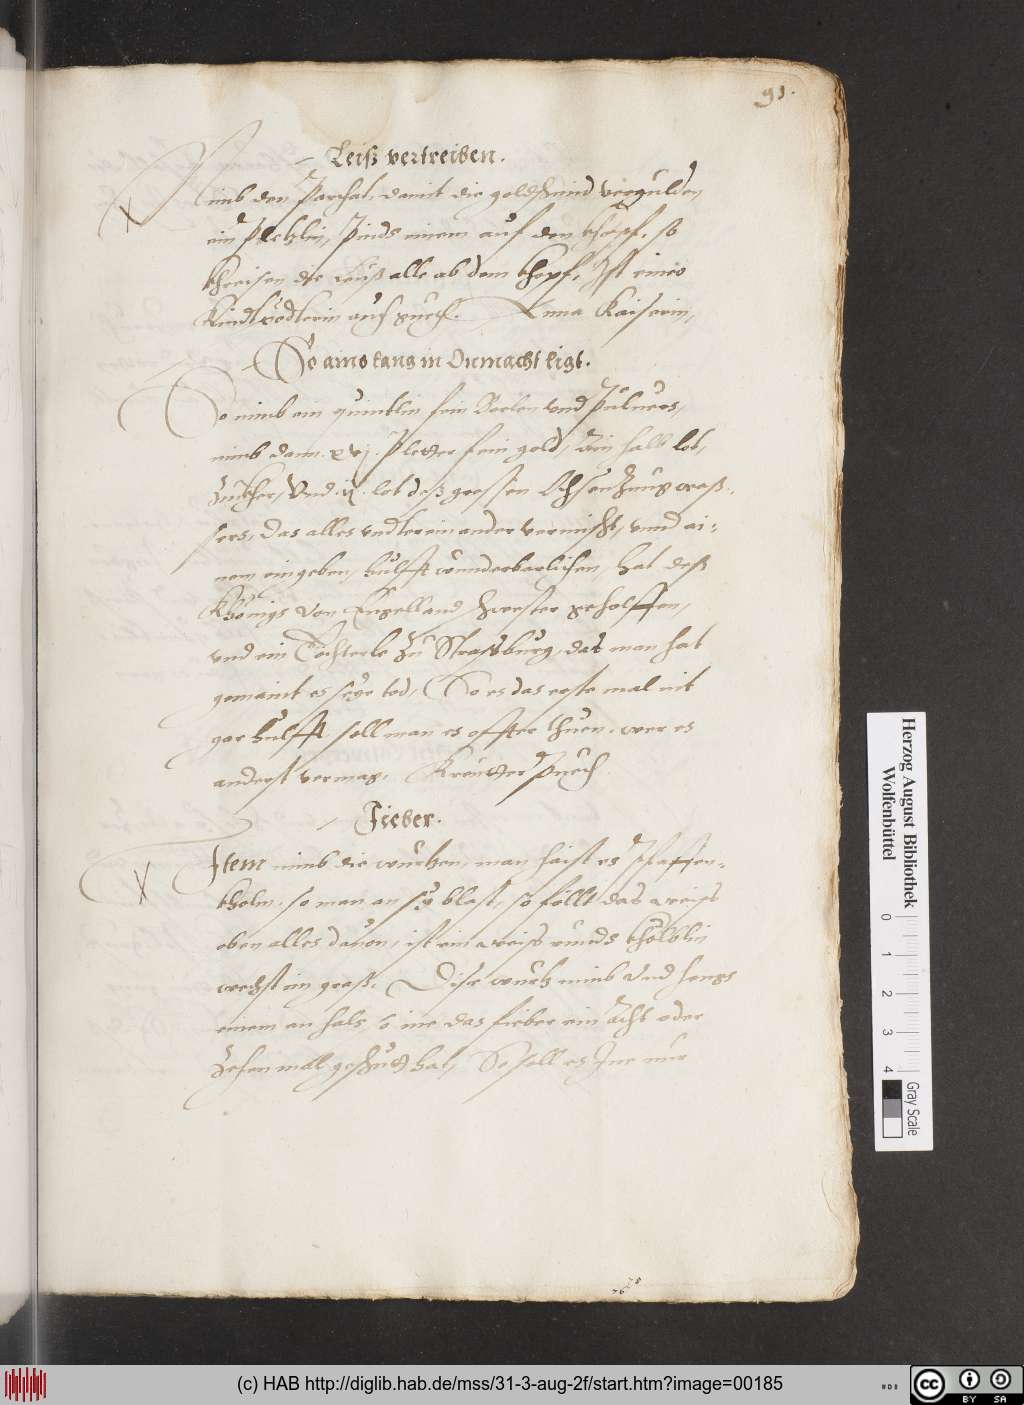 91.
Leiß vertreiben.
Nimb den Parchat, damit die goldschmid vergulden
ein Plehlin, Pinds einem auf den khopf, so
khreisen die leüß alle ab dem khopf, Ist eines
Kindlpödterin auf Anna Kaiserin,
So ains lang in Onmacht ligt.
So nimb ein quintlin fein Perlen vnd Püluers,
nimb dann. xvj. Pletter fein gold, Ain halb lot,
Zukher, Vnd .ij. lot deß grossen Ochsenzung waß-
sers, Das alles vndtereinander vermischt, vnnd ai-
nem eingeben, hülfft wunderbarlichen, hat deß
Khönigs von Engelland schwester geholffen,
vnd ein Töchterle zů Straßburg, das man hat
gemaint es seye tod, So es das erste mal nit
gar hülfft soll man es offter thuen, wer es
anderst vermag. Kreutter Puech
Fieber.
Item nimb die wurtzen, man haist es Pfaffen-
kholm, so man an sy blast, so föllt das weiß
oben alles dauon, ist ein weiß runds khölblin
wechst im graß. Dise wurtz nimb vnd hengs
einem an hals, so ine das fieber ein Acht oder
Zehen mal geschütt hat, So soll es Ine nur
Herzog August Bibliothek
Wolfenbüttel
0
1
2
3
4
Gray Scale
(c) HAB http://diglib.hab.de/mss/31-3-aug-2f/start.htm?image=00185
cc
BY SA